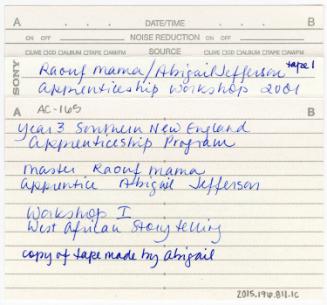 A DATE/TIME B
ON OFF NOISE REDUCTION ON OFF
LIVE CD ALBUM TAPE AM/FM SOURCE LIVE CD ALBUM TAPE AM/FM
SONY
Raouf Mama/Abigail Jefferson tape 1
Apprenticeship Workshop 2001
A AC-165 B
Year 3 Southern New England
Apprenticeship Program
Master Raouf Mama
Apprentice Abigail Jefferson
Workshop I
West African Story telling
copy of tape made by Abigail
2015.196.811.1c